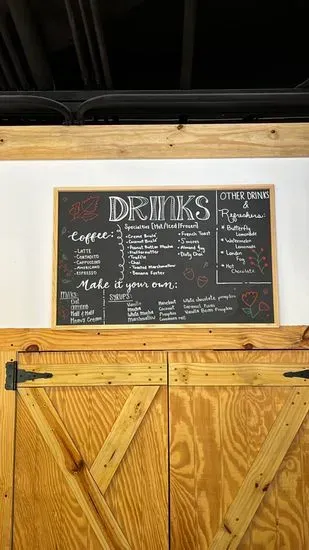 DRINKS
Specialties (Hot/Iced/Frozen)
Coffee:
- LATTE
- CORTADITO
- CAPPUCCINO
- AMERICANO
- ESPRESSO
• Creme Brulé
• Coconut Brulé
• Peanut Butter Mocha
• Truffle
• Chai
• Toasted Marshmallow
• Banana Foster
• French Toast
• S'mores
• Almond Joy
• Dirty Chai
OTHER DRINKS
&
Refreshers:
• Butterfly
Lemonade
• Watermelon
Lemonade
• London
Fog
• Hot
Chocolate
Make it your own:
MILKS:
Oat
Almond
Half & Half
Heavy Cream
SYRUPS:
Vanilla
Mocha
White Mocha
Marshmallow
Hazelnut
Coconut
Pumpkin
Cinnamon
White Chocolate Pumpkin
Caramel
Vanilla Bean Pumpkin